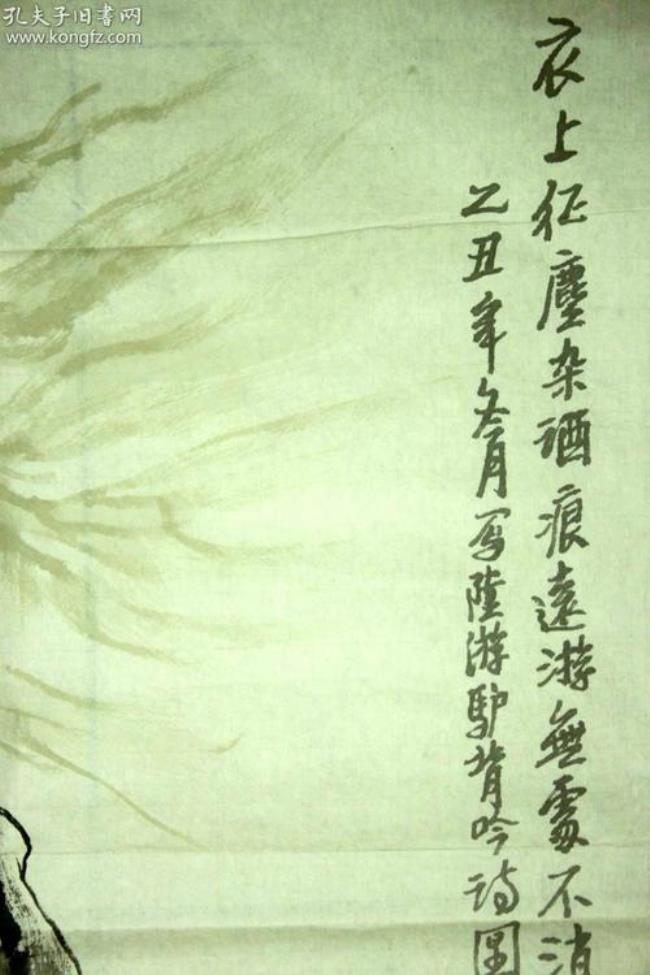 孔夫子旧书网
www.kongfz.com
衣上征塵杂酒痕遠游無處不消
乙丑年冬月写陸游驴背吟诗图